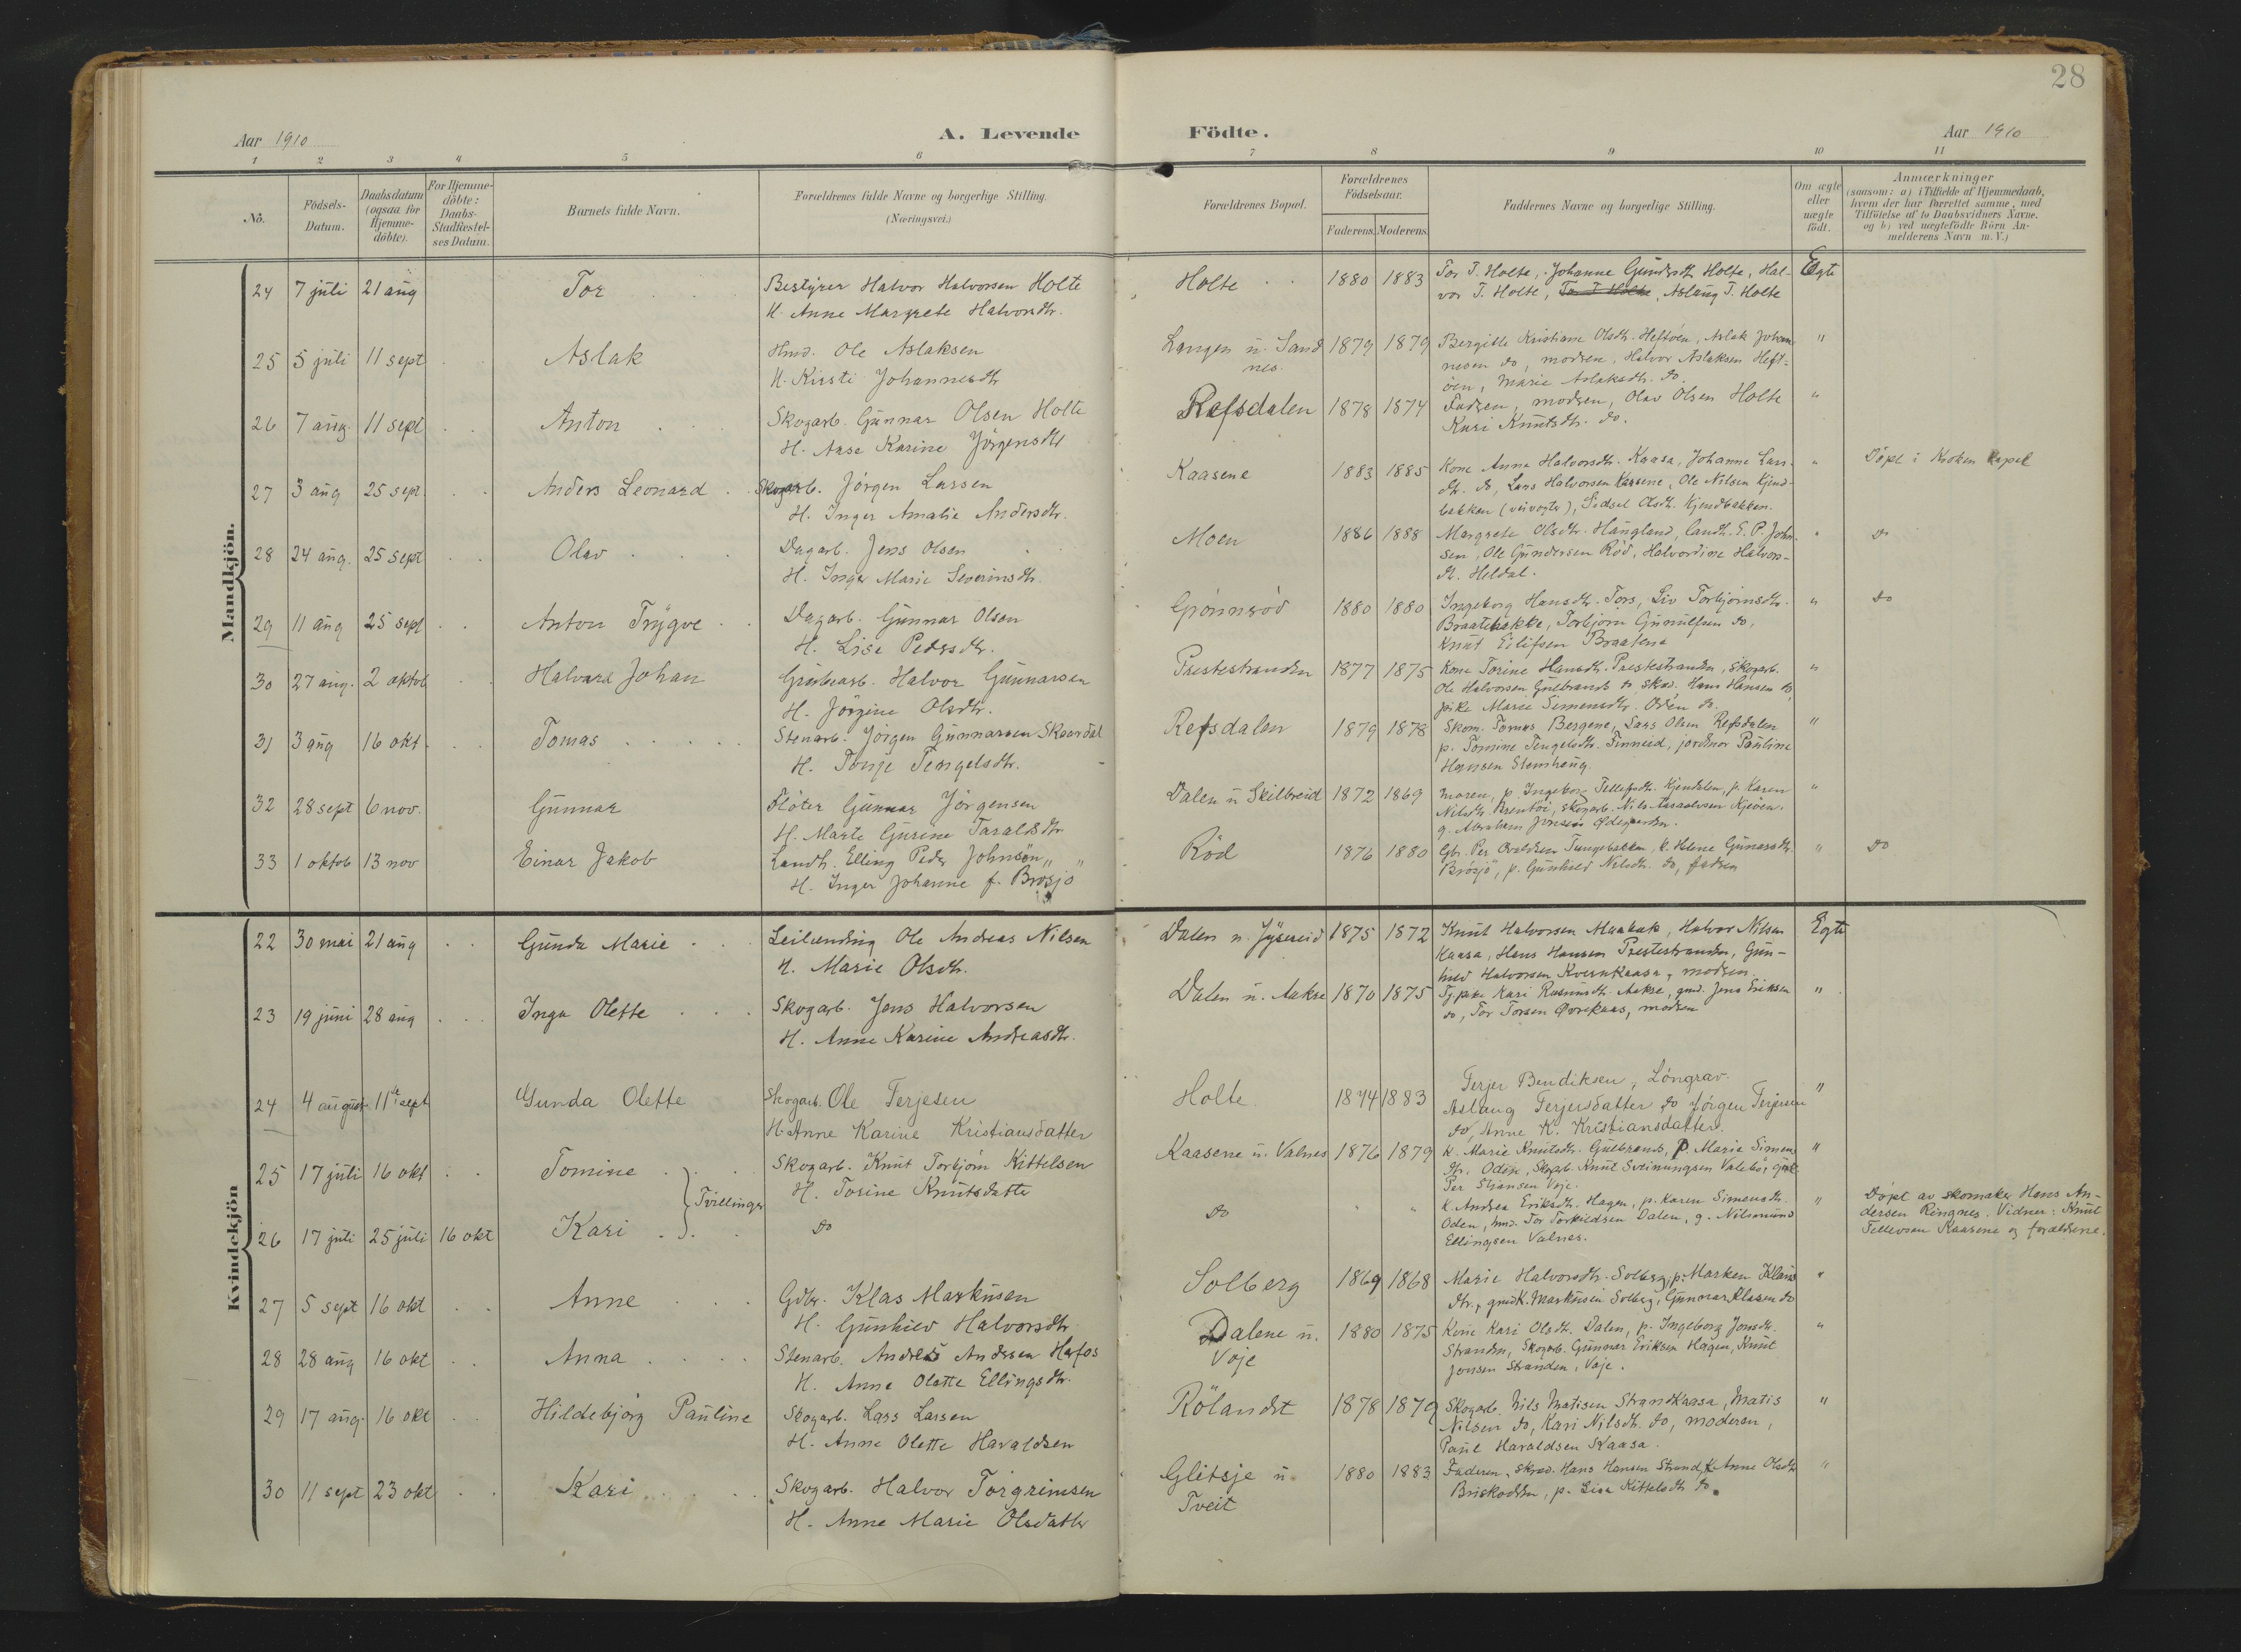 28
Aar 1910 A. Levende Födte. Aar 1910
1 2 3 4 5 6 7 8 9 10 11
No.
Födsels-
Datum.
Daabsdatum
(ogsaa for
Hjemme-
döbte).
For Hjemme-
döbte:
Daabs-
Stadfæstel-
ses Datum.
Barnets fulde Navn.
Forældrenes fulde Navne og borgerlige Stilling.
(Næringsvei.)
Forældrenes Bopæl.
Forældrenes
Födselsaar.
Faderens. Moderens.
Faddernes Navne og borgerlige Stilling.
Om ægte
eller
uægte
födt.
Anmærkninger
(saasom: a) i Tilfælde af Hjemmedaab,
hvem der har forrettet samme, med
Tilföielse af to Daabsvidners Navne.
og b) ved uægtefödte Börn An-
melderens Navn m. V.)
Mandkjön.
24 7 juli 21 aug Tor Bestyrer Halvor Halvorsen Holte
H. Anne Margrete Halvorsdtr.
Holte 1880 1883 Tor T. Holte, Johanne Gundersdtr. Holte, Hal-
vor T. Holte, Tor T. Holte, Aslaug T. Holte
Egte
25 5 juli 11 sept Aslak Hmd. Ole Aslaksen
H. Kirsti Johannesdtr
Langen u. Sand
nes.
1879 1879 Bergitte Kristiane Olsdtr. Heftöen, Aslak Johan
nesen do, modren, Halvor Aslaksen Heft-
öen, Marie Aslaksdtr. do.
"
26 7 aug. 11 sept Anton Skogarb. Gunnar Olsen Holte
H. Aase Karine Jörgensdtr
Refsdalen 1878 1874 Fadren, modren, Olav Olsen Holte
Kari Knutsdtr. do.
"
27 3 aug 25 sept. Anders Leonard Skogarb. Jörgen Larsen
H. Inger Amalie Andersdtr.
Kaasene 1883 1885 Kone Anna Halvorsdtr. Kaasa, Johanne Lars-
dtr. do, Lars Halvorsen Kaasene, Ole Nilsen Kjend-
bakken (veivogter), Sidsel Olsdtr. Kjendbakken.
" Döpt i Kroken kapel
28 24 aug. 25 sept Olav Dagarb. Jens Olsen
H. Inger Marie Severinsdtr.
Moen 1886 1888 Margrete Olsdtr. Haugland, landh. E. P. John-
sen, Ole Gundersen Röd, Halvordine Halvors-
dt. Heldal.
" do
29 11 aug 25 sept Anton Trygve Dagarb. Gunnar Olsen
H. Lise Pedersdtr.
Grönnsöd 1880 1880 Ingeborg Hansdtr. Fors, Liv Torbjörnsdtr.
Braatebakke, Torbjörn Gunulfsen do,
Knut Eilifsen Braatene
" do
30 27 aug. 2 oktob Halvard Johan Grubearb. Halvor Gunnarsen
H. Jörgine Olsdtr.
Prestestranden 1877 1875 Kone Torine Hansdtr. Prestestranden, Skogarb.
Ole Halvorsen Gulbrands do, Skrd. Hans Hansen do
pike Marie Simensdtr. Oden do.
"
31 3 aug 16 okt. Tomas Stenarb. Jörgen Gunnarsen Skaardal
H. Tonje Tengelsdtr.
Refsdalen 1879 1878 Skom. Tomas Bergene, Lars Olsen Refsdalen
p. Tomine Tengelsdtr. Finneid, jordmor Pauline
Hansen Stenhaug.
"
32 28 sept 6 nov. Gunnar Flöter Gunnar Jörgensen
H. Marte Gurine Taraldsdtr
Dalen u Skilbreid 1872 1869 moren, p. Ingeborg Tellefsdtr. Kjendalen, p. Karen
Nilsdtr. Brentöi, skogarb. Nils Kjeöen.
g. Abraham Jensen Ödegaarden.
"
33 1 oktob 13 nov Einar Jakob Landh. Elling Peder Johnsön "
H. Inger Johanne f. Brosjö "
Röd 1876 1880 Gbr. Per Tungebakken, k. Helene Gunarsdtr.
Brösjö, p. Gunhild Nilsdtr. do, fadren
" do
Kvindekjön
22 30 mai 21 aug Gunda Marie Leilending Ole Andreas Nilsen
H. Marie Olsdtr.
Dalen u. Jysereid 1875 1872 Knut Halvorsen Maabak, Halvor Nilsen
Kaasa, Hans Hansen Prestestranden, Gun-
hild Halvorsen Kvernkaasa, modren.
Egte
23 19 juni 28 aug Inga Olette Skogarb. Jens Halvorsen
H. Anne Karine Andreasdtr.
Dalen u. Aakre 1870 1875 Tj.pike Kari Rasmusdtr. Aakre, gmd. Jens Eriksen
do, Tor Torsen Övrekaas, modren
"
24 4 august 11te sept Gunda Olette Skogarb. Ole Terjesen
H. Anne Karine Kristiansdatter
Holte. 1874 1883 Terjer Bendiksen, Löngrav.
Aslaug Terjersdatter do Jörgen Terjersen
do, Anne K. Kristiansdatter.
"
25 17 juli 16 okt Tomine Skogarb. Knut Torbjörn Kittelsen
H. Torine Knutsdatter
Tvillinger
Kaasene u. Valnes 1876 1879 k. Marie Knutsdtr. Gulbrands, P. Marie Simens
dtr. Oden, Skogarb. Knut Sveinungsen Valebö, gmd.
Per Stiansen Voje.
"
26 17 juli 25 juli 16 okt Kari do
do " " k. Andrea Eriksdtr. Hagen, p. Karen Simensdtr.
Oden, hmd. Tor Torkildsen Dalen, g. Nilsmund
Ellingsen Valnes.
" Döpt av skomaker Hans An-
dersen Ringnes. Vidner: Knut
Tellevsen Kaasene og forældrene.
27 5 sept 16 okt Anne Gdbr. Klas Markusen
H. Gunhild Halvorsdtr.
Solberg 1869 1868 Marie Halvorsdtr. Solberg, p. Marken Klaus
dtr., gmd K. Markusen Solberg, Gunnar Klasen do
"
28 28 aug 16 okt Anna Stenarb. Andreas Andersen Herfos
H. Anna Olette Ellingsdtr.
Dalene u.
Voje
1880 1875 Kone Kari Olsdt. Dalen, p. Ingeborg Jonsdt.
Stranden, Skogarb. Gunnar Eriksen Hagen, Knut
Jonsen Stranden, Voje.
"
29 17 aug. 16 okt Hildebjörg Pauline Skogarb. Lars Larsen
H. Anne Olette Haraldsen
Rölandst 1878 1879 Skogarb. Nils Matisen Strandkaasa, Matis
Nilsen do, Kari Nilsdt. do, moderen,
Paul Haraldsen Kaasa.
"
30 11 sept 23 okt Kari Skogarb. Halvor Torgrimsen
H. Anne Marie Olsdatter
Glitsje u.
Tveit
1880 1883 Faderen, Skrad. Hans Hansen Strand, k. Anne Olsdtr
Briskodden, p. Lisa Kittelsdt do.
"